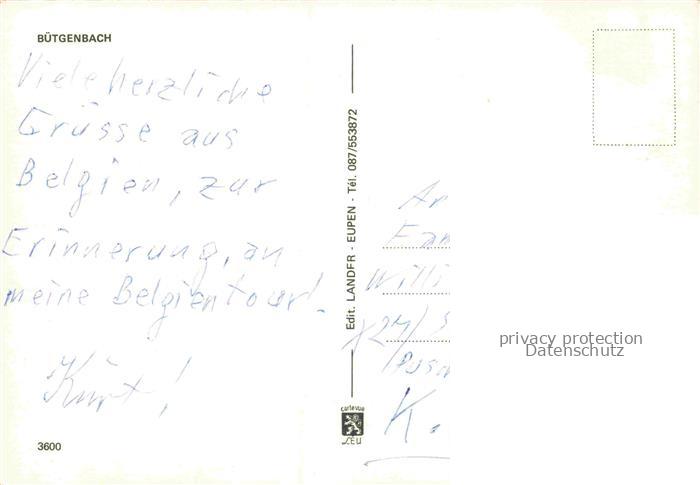 BÜTGENBACH
Viele herzliche
Grüsse aus
Belgien, zur
Erinnerung, an
meine Belgientour!
Kurt!
3600
Edit. LANDER - EUPEN - Tél. 087/553872
carte vue
An
Fam
Willi
K.
privacy protection
Datenschutz